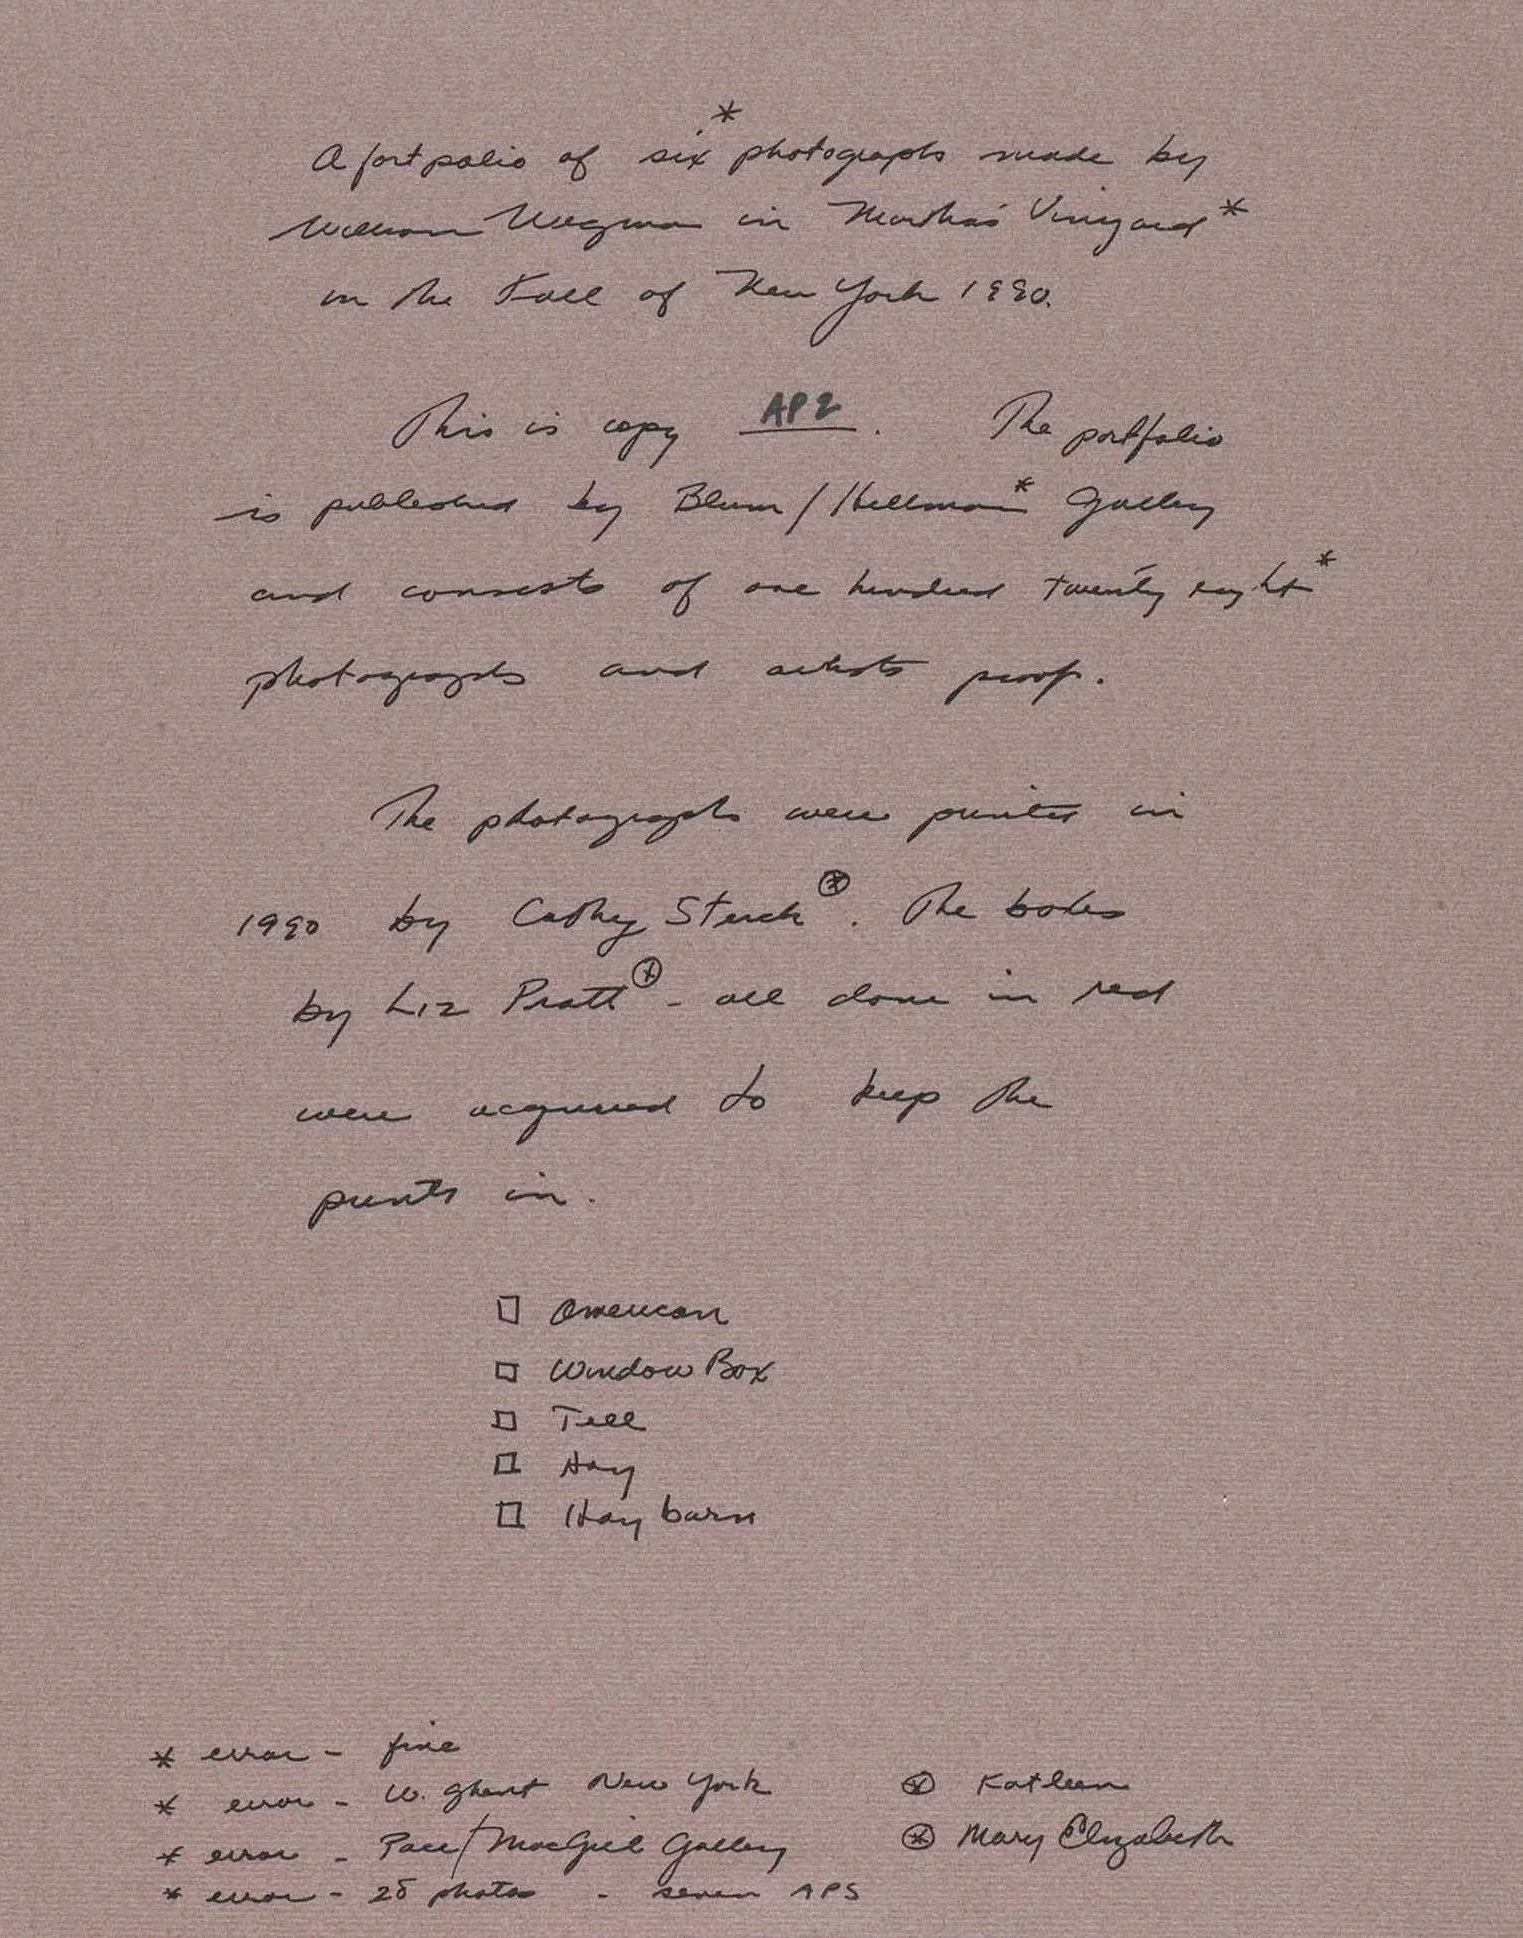 *
A fortpolio of six photographs made by
William Wegman in Martha's Vineyard *
in the Fall of New York 1990.
This is copy AP2. The portfolio
is published by Blum/Hellman* Gallery
and consists of one hundred twenty eight*
photographs and artists proof.
The photographs were printed in
1990 by Cathy Sterck⊛. The boxes
by Liz Pratt⊛ - all done in red
were acquired to keep the
prints in.
□ American
□ Window Box
□ Tell
□ Hay
□ Hay barn
* error - five
* error - W. Ghent New York ⊛ Katleen
* error - Pace/MacGill Gallery ⊛ Mary Elizabeth
* error - 28 photos - seven APS